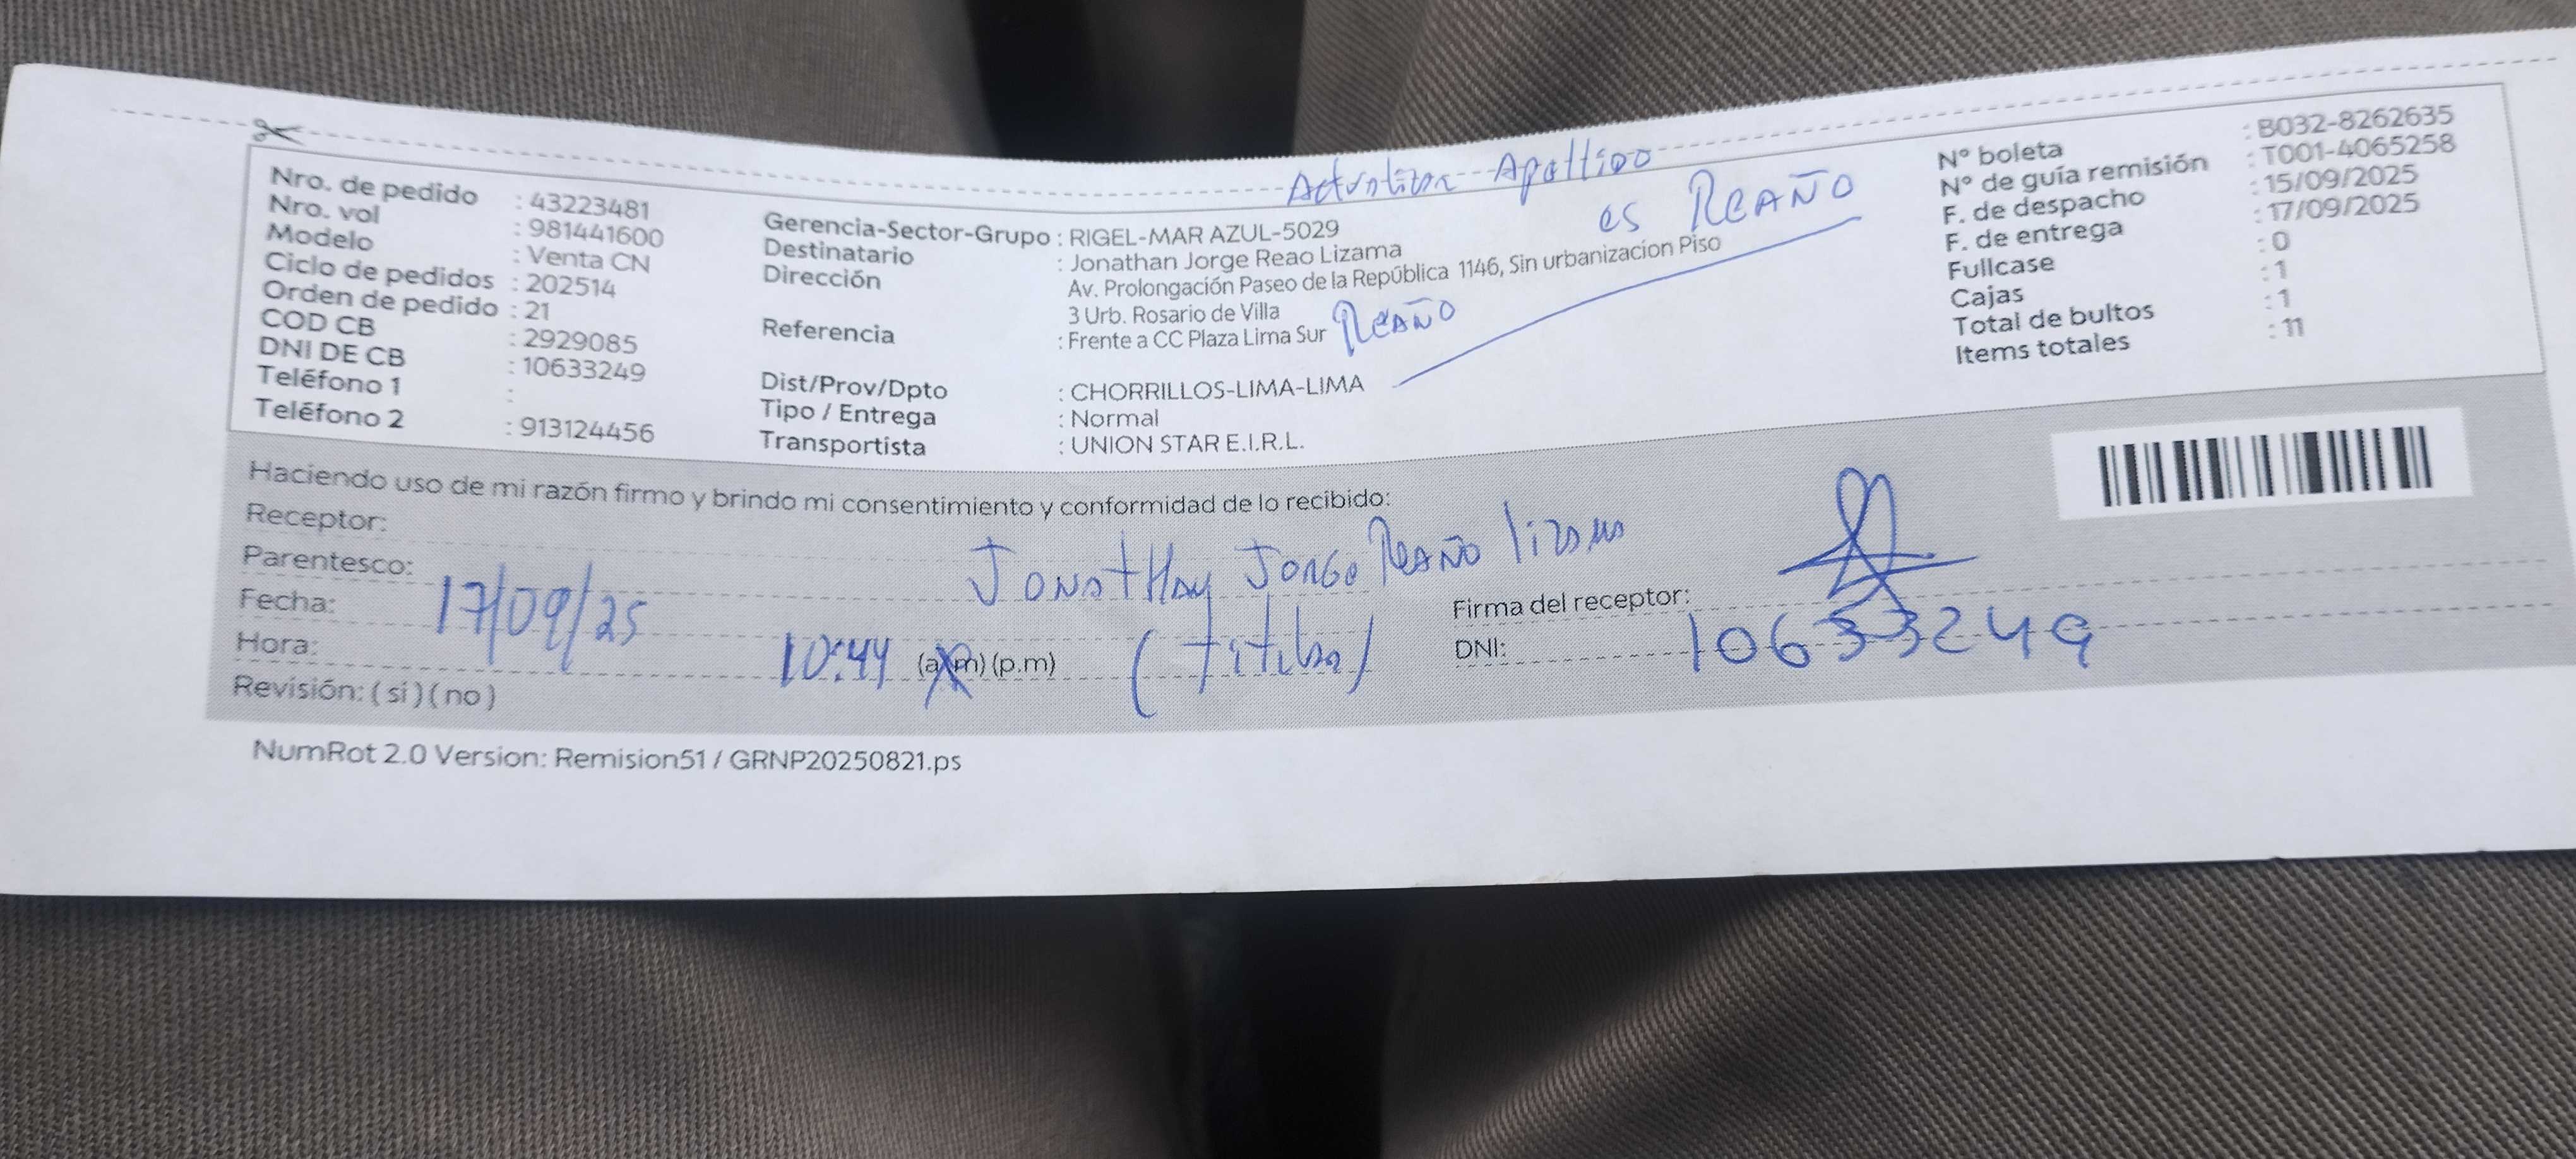 Actualizar Apellido
es REAÑO
Nro. de pedido : 43223481
Nro. vol : 981441600
Modelo : Venta CN
Ciclo de pedidos : 202514
Orden de pedido : 21
COD CB : 2929085
DNI DE CB : 10633249
Teléfono 1 :
Teléfono 2 : 913124456
Gerencia-Sector-Grupo : RIGEL-MAR AZUL-5029
Destinatario : Jonathan Jorge Reao Lizama
Dirección : Av. Prolongación Paseo de la República 1146, Sin urbanizacion Piso
3 Urb. Rosario de Villa
REAÑO
Referencia : Frente a CC Plaza Lima Sur
Dist/Prov/Dpto : CHORRILLOS-LIMA-LIMA
Tipo / Entrega : Normal
Transportista : UNION STAR E.I.R.L.
N° boleta : B032-8262635
N° de guía remisión : T001-4065258
F. de despacho : 15/09/2025
F. de entrega : 17/09/2025
Fullcase : 0
Cajas : 1
Total de bultos : 1
Items totales : 11
Haciendo uso de mi razón firmo y brindo mi consentimiento y conformidad de lo recibido:
Receptor: Jonathan Jorge REAÑO lizama
Parentesco: (titular)
Fecha: 17/09/25
Hora: 10:44 (a.m) (p.m)
Revisión: ( si ) ( no )
Firma del receptor:
DNI: 10633249
NumRot 2.0 Version: Remision51 / GRNP20250821.ps